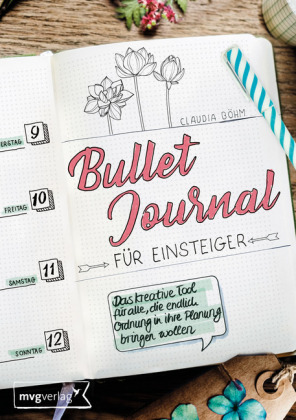 CLAUDIA BÖHM
Bullet
Journal
FÜR EINSTEIGER
9
FREITAG
10
SAMSTAG
11
SONNTAG
12
Das kreative Tool
für alle, die endlich
Ordnung in ihre Planung
bringen wollen
mvgverlag